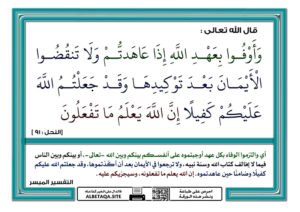 قال الله تعالى :
وَأَوْفُوا بِعَهْدِ اللَّهِ إِذَا عَاهَدتُّمْ وَلَا تَنقُضُوا
الْأَيْمَانَ بَعْدَ تَوْكِيدِهَا وَقَدْ جَعَلْتُمُ اللَّهَ
عَلَيْكُمْ كَفِيلًا إِنَّ اللَّهَ يَعْلَمُ مَا تَفْعَلُونَ
[ النحل : ٩١ ]
أي والتزموا الوفاء بكل عهد أوجبتموه على أنفسكم بينكم وبين الله -تعالى-، أو بينكم وبين الناس
فيما لا يخالف كتاب الله وسنة نبيه، ولا ترجعوا في الأيمان بعد أن أكدتموها، وقد جعلتم الله عليكم
كفيلًا وضامنًا حين عاهدتموه. إن الله يعلم ما تفعلونه، وسيجزيكم عليه.
التفسير الميسر
ALBETAQA.SITE
احرص على طباعة
ونشر هذه البطاقة